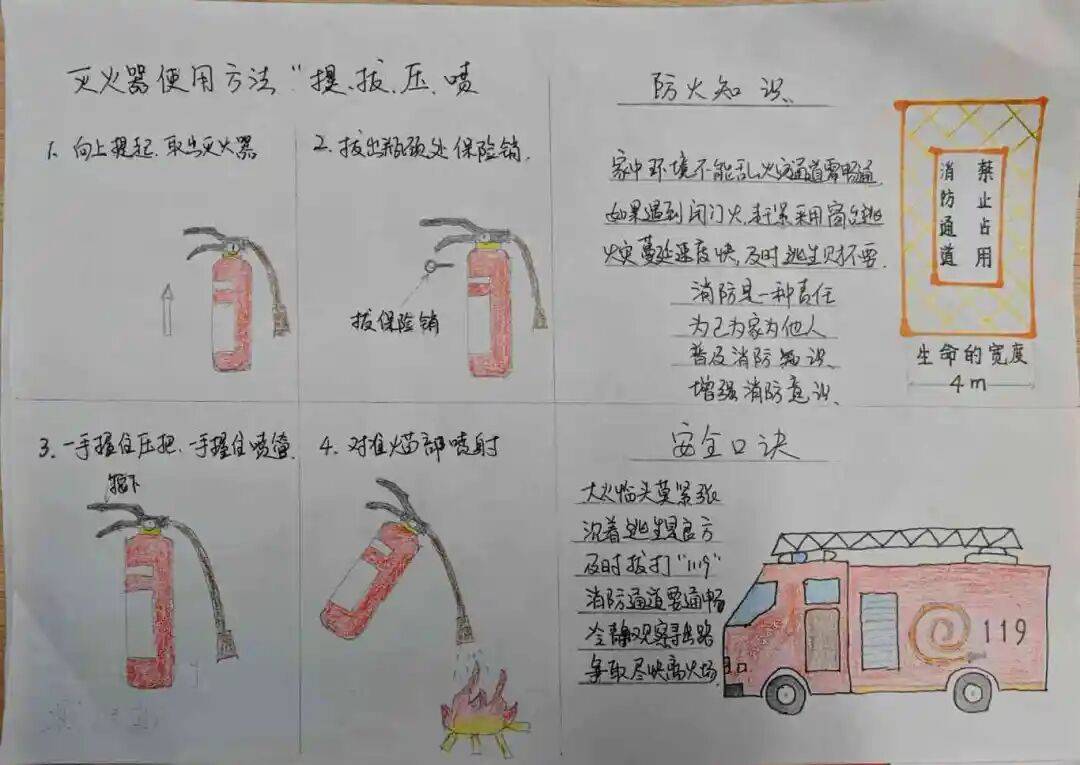 灭火器使用方法“提、拔、压、喷
1、向上提起、取出灭火器
2、拔出瓶颈处保险销、
拔保险销
3、一手握住压把、一手握住喷管、
按下
4、对准火苗部喷射
防火知识
家中环境不能乱,火灾通道需畅通、
如果遇到闭门火,赶紧采用窗台逃
火灾蔓延速度快,及时逃生财不要、
消防是一种责任
为己为家为他人
普及消防知识、
增强消防意识、
禁止占用
消防通道
生命的宽度
4m
安全口诀
大火临头莫紧张
沉着逃生是良方
及时拨打“119”
消防通道要通畅
冷静观察寻出路
争取尽快离火场
119